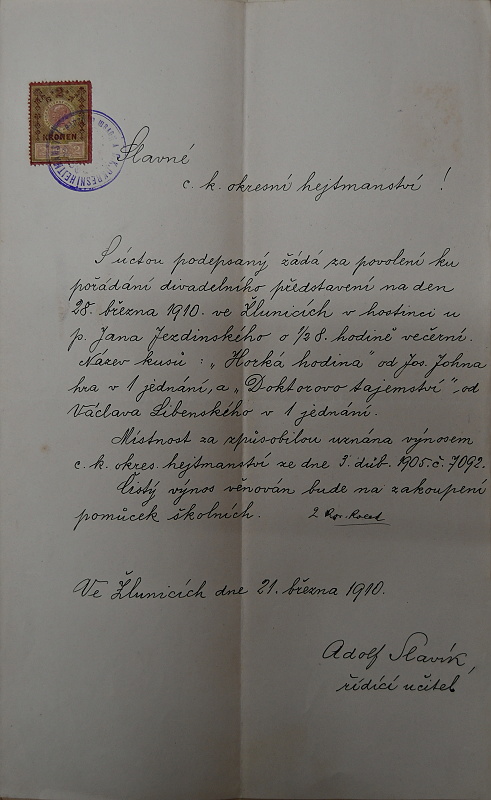 2
KRONEN
Slavné
c. k. okresní hejtmanství !
S úctou podepsaný žádá za povolení ku
pořádání divadelního představení na den
28. března 1910. ve Žlunicích v hostinci u
p. Jana Jezdinského o 1/2 8. hodině večerní.
Název kusů : „Horká hodina" od Jos. Johna
hra v 1 jednání, a „Doktorovo tajemství", od
Václava Libenského v 1 jednání.
Místnost za způsobilou uznána výnosem
c. k. okres. hejtmanství ze dne 3. dub. 1905. č. 7092.
Čistý výnos věnován bude na zakoupení
pomůcek školních. 2
Ve Žlunicích dne 21. března 1910.
Adolf Slavík,
řídící učitel